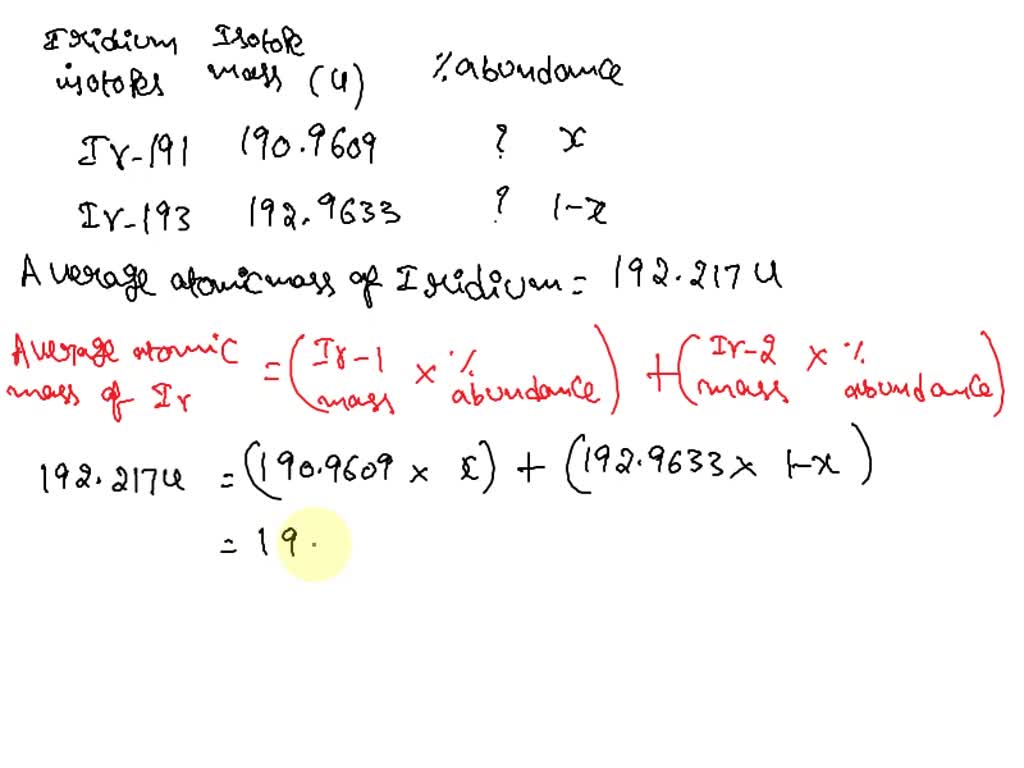 Iridium Isotope
isotopes mass (u) % abundance
Ir-191 190.9609 ? x
Ir-193 192.9633 ? 1-x
Average atomic mass of Iridium = 192.217u
Average atomic mass of Ir = (Ir-1 mass × % abundance) + (Ir-2 mass × % abundance)
192.217u = (190.9609 × x) + (192.9633 × 1-x)
= 19.